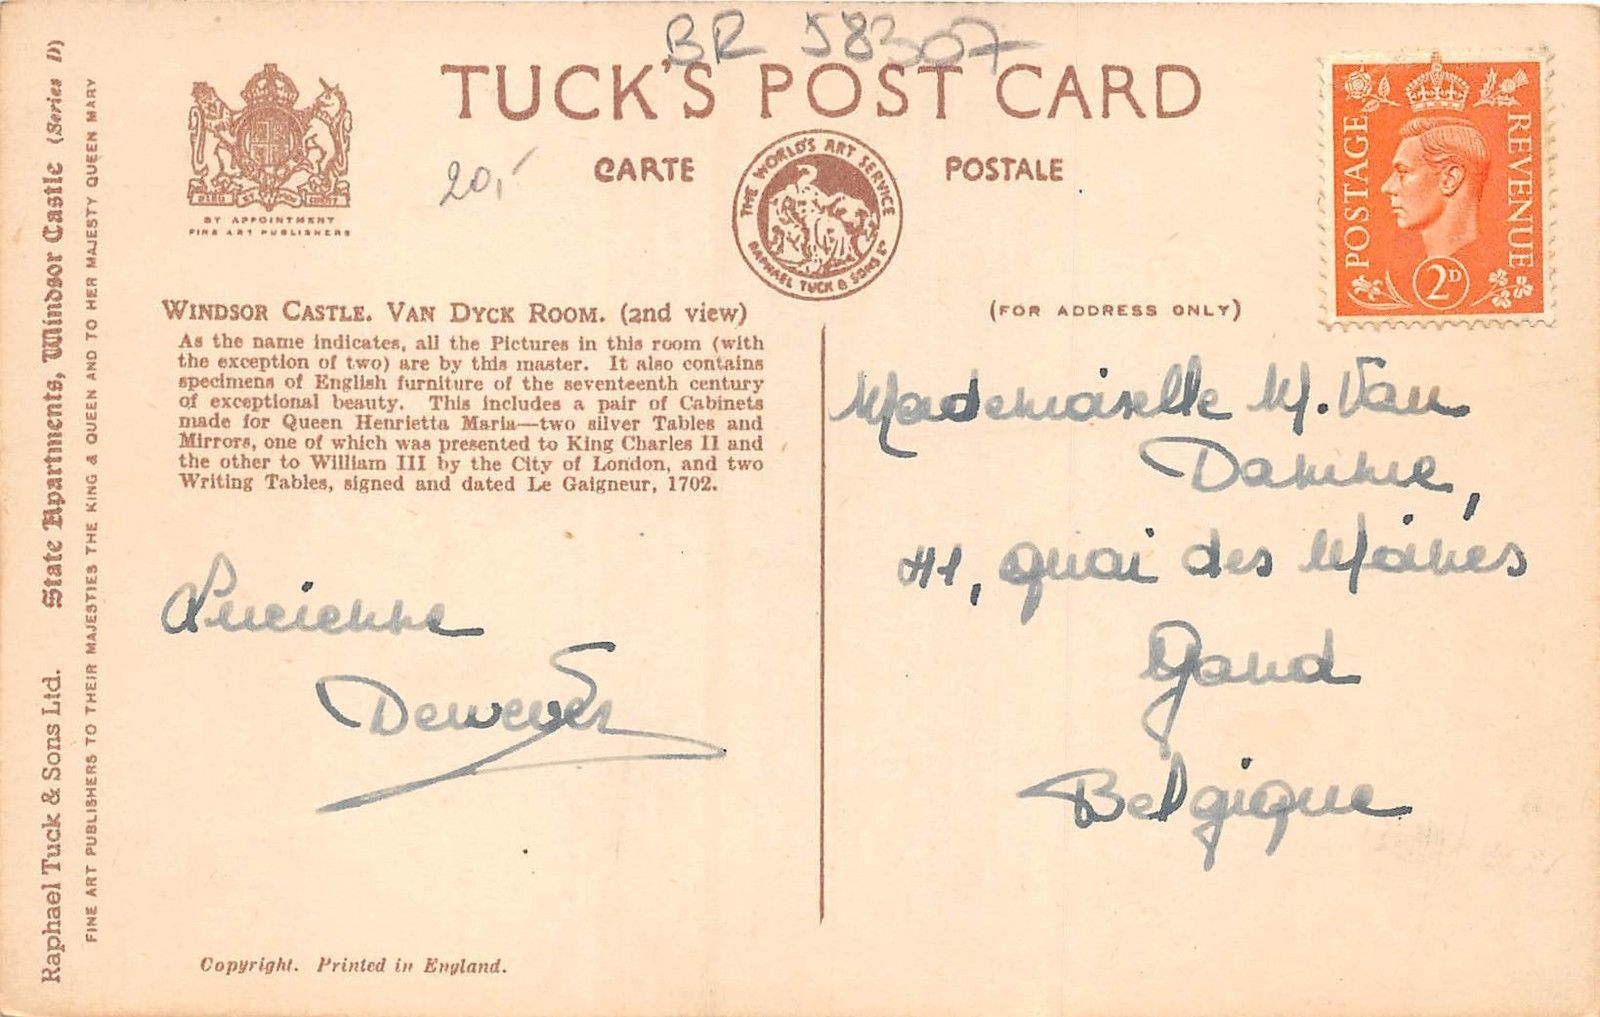 BR 58307
TUCK'S POST CARD
CARTE POSTALE
20,-
BY APPOINTMENT
FINE ART PUBLISHERS
THE WORLD'S ART SERVICE
RAPHAEL TUCK & SONS LD
POSTAGE REVENUE
2D
WINDSOR CASTLE. VAN DYCK ROOM. (2nd view)
As the name indicates, all the Pictures in this room (with
the exception of two) are by this master. It also contains
specimens of English furniture of the seventeenth century
of exceptional beauty. This includes a pair of Cabinets
made for Queen Henrietta Maria—two silver Tables and
Mirrors, one of which was presented to King Charles II and
the other to William III by the City of London, and two
Writing Tables, signed and dated Le Gaigneur, 1702.
Lucienne
(FOR ADDRESS ONLY)
Mademoiselle M. Van
Damme,
41, quai des Moines
Gand
Belgique
Raphael Tuck & Sons Ltd. State Apartments, Windsor Castle (Series D)
FINE ART PUBLISHERS TO THEIR MAJESTIES THE KING & QUEEN AND TO HER MAJESTY QUEEN MARY
Copyright. Printed in England.